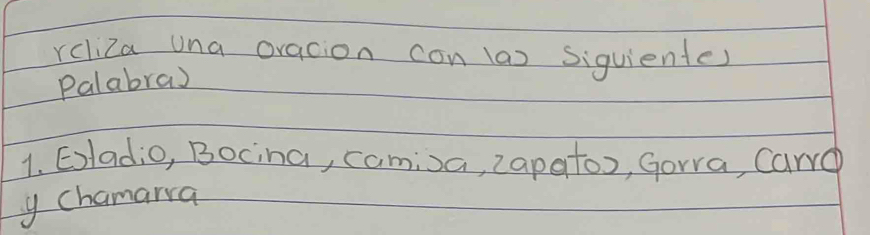 rcliza una oracion con las siguientes
Palabras
1. Estadio, Bocina, camisa, zapatos, Gorra, Carro
y Chamarra